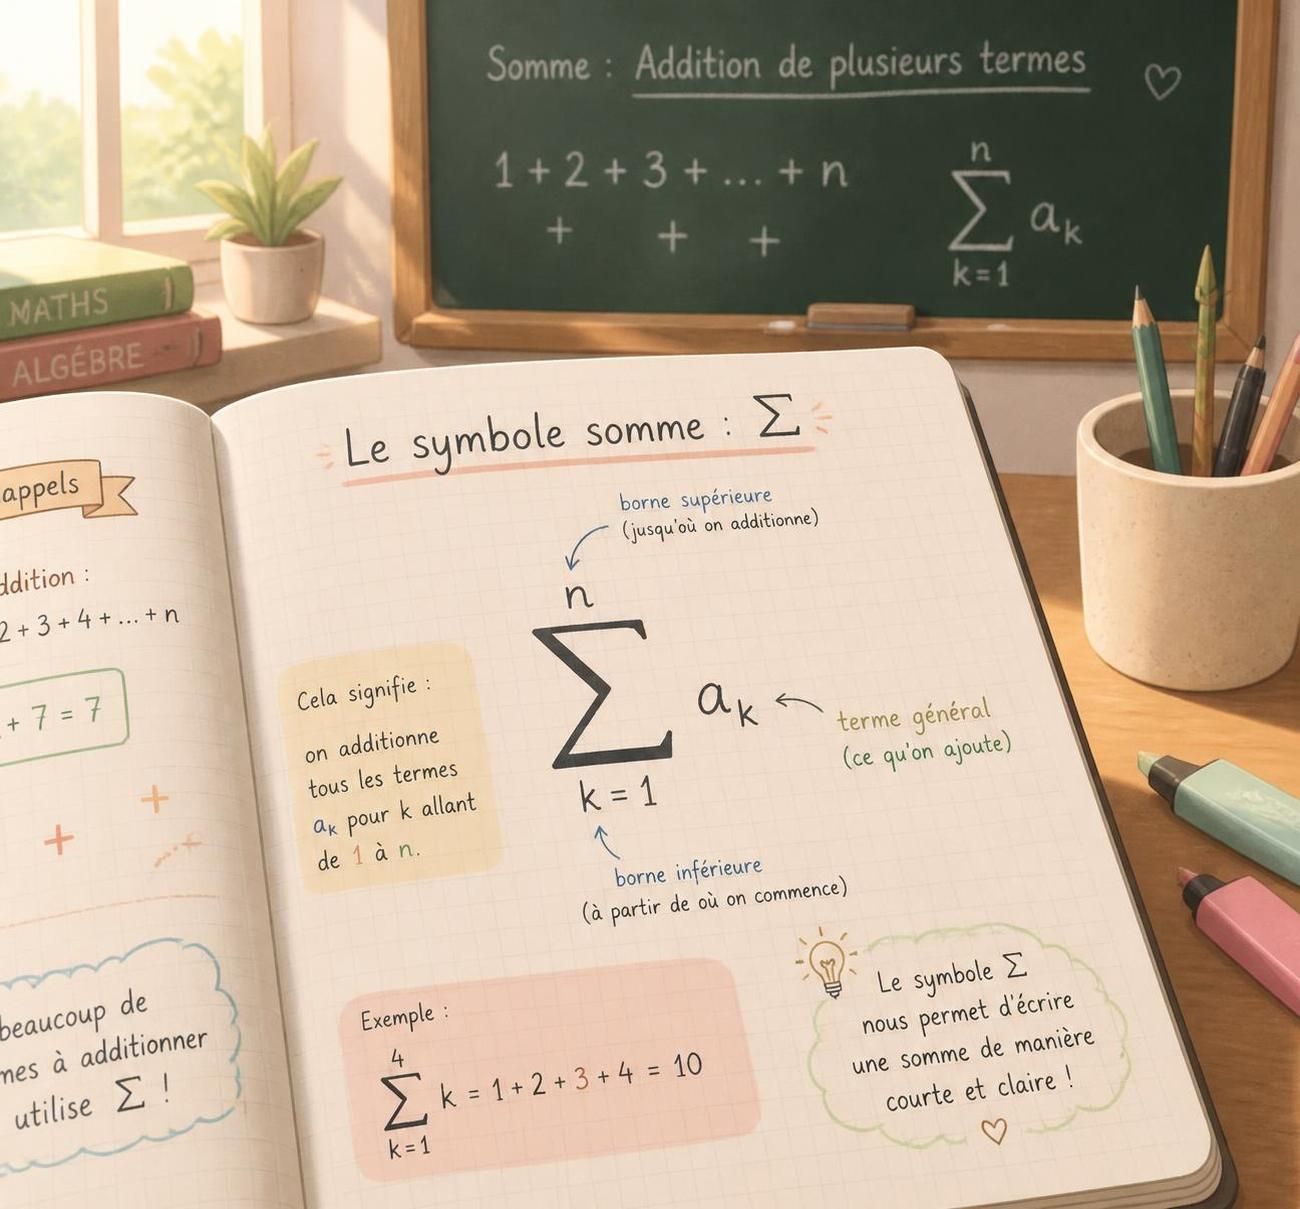 Somme : Addition de plusieurs termes
1 + 2 + 3 + ... + n
+ + +
n
∑ aₖ
k=1
MATHS
ALGÉBRE
appels
ddition :
2 + 3 + 4 + ... + n
+ 7 = 7
+
+
beaucoup de
mes à additionner
utilise ∑ !
Le symbole somme : ∑
borne supérieure
(jusqu'où on additionne)
n
∑ aₖ
k = 1
terme général
(ce qu'on ajoute)
borne inférieure
(à partir de où on commence)
Cela signifie :
on additionne
tous les termes
aₖ pour k allant
de 1 à n.
Exemple :
4
∑ k = 1 + 2 + 3 + 4 = 10
k=1
Le symbole ∑
nous permet d'écrire
une somme de manière
courte et claire !